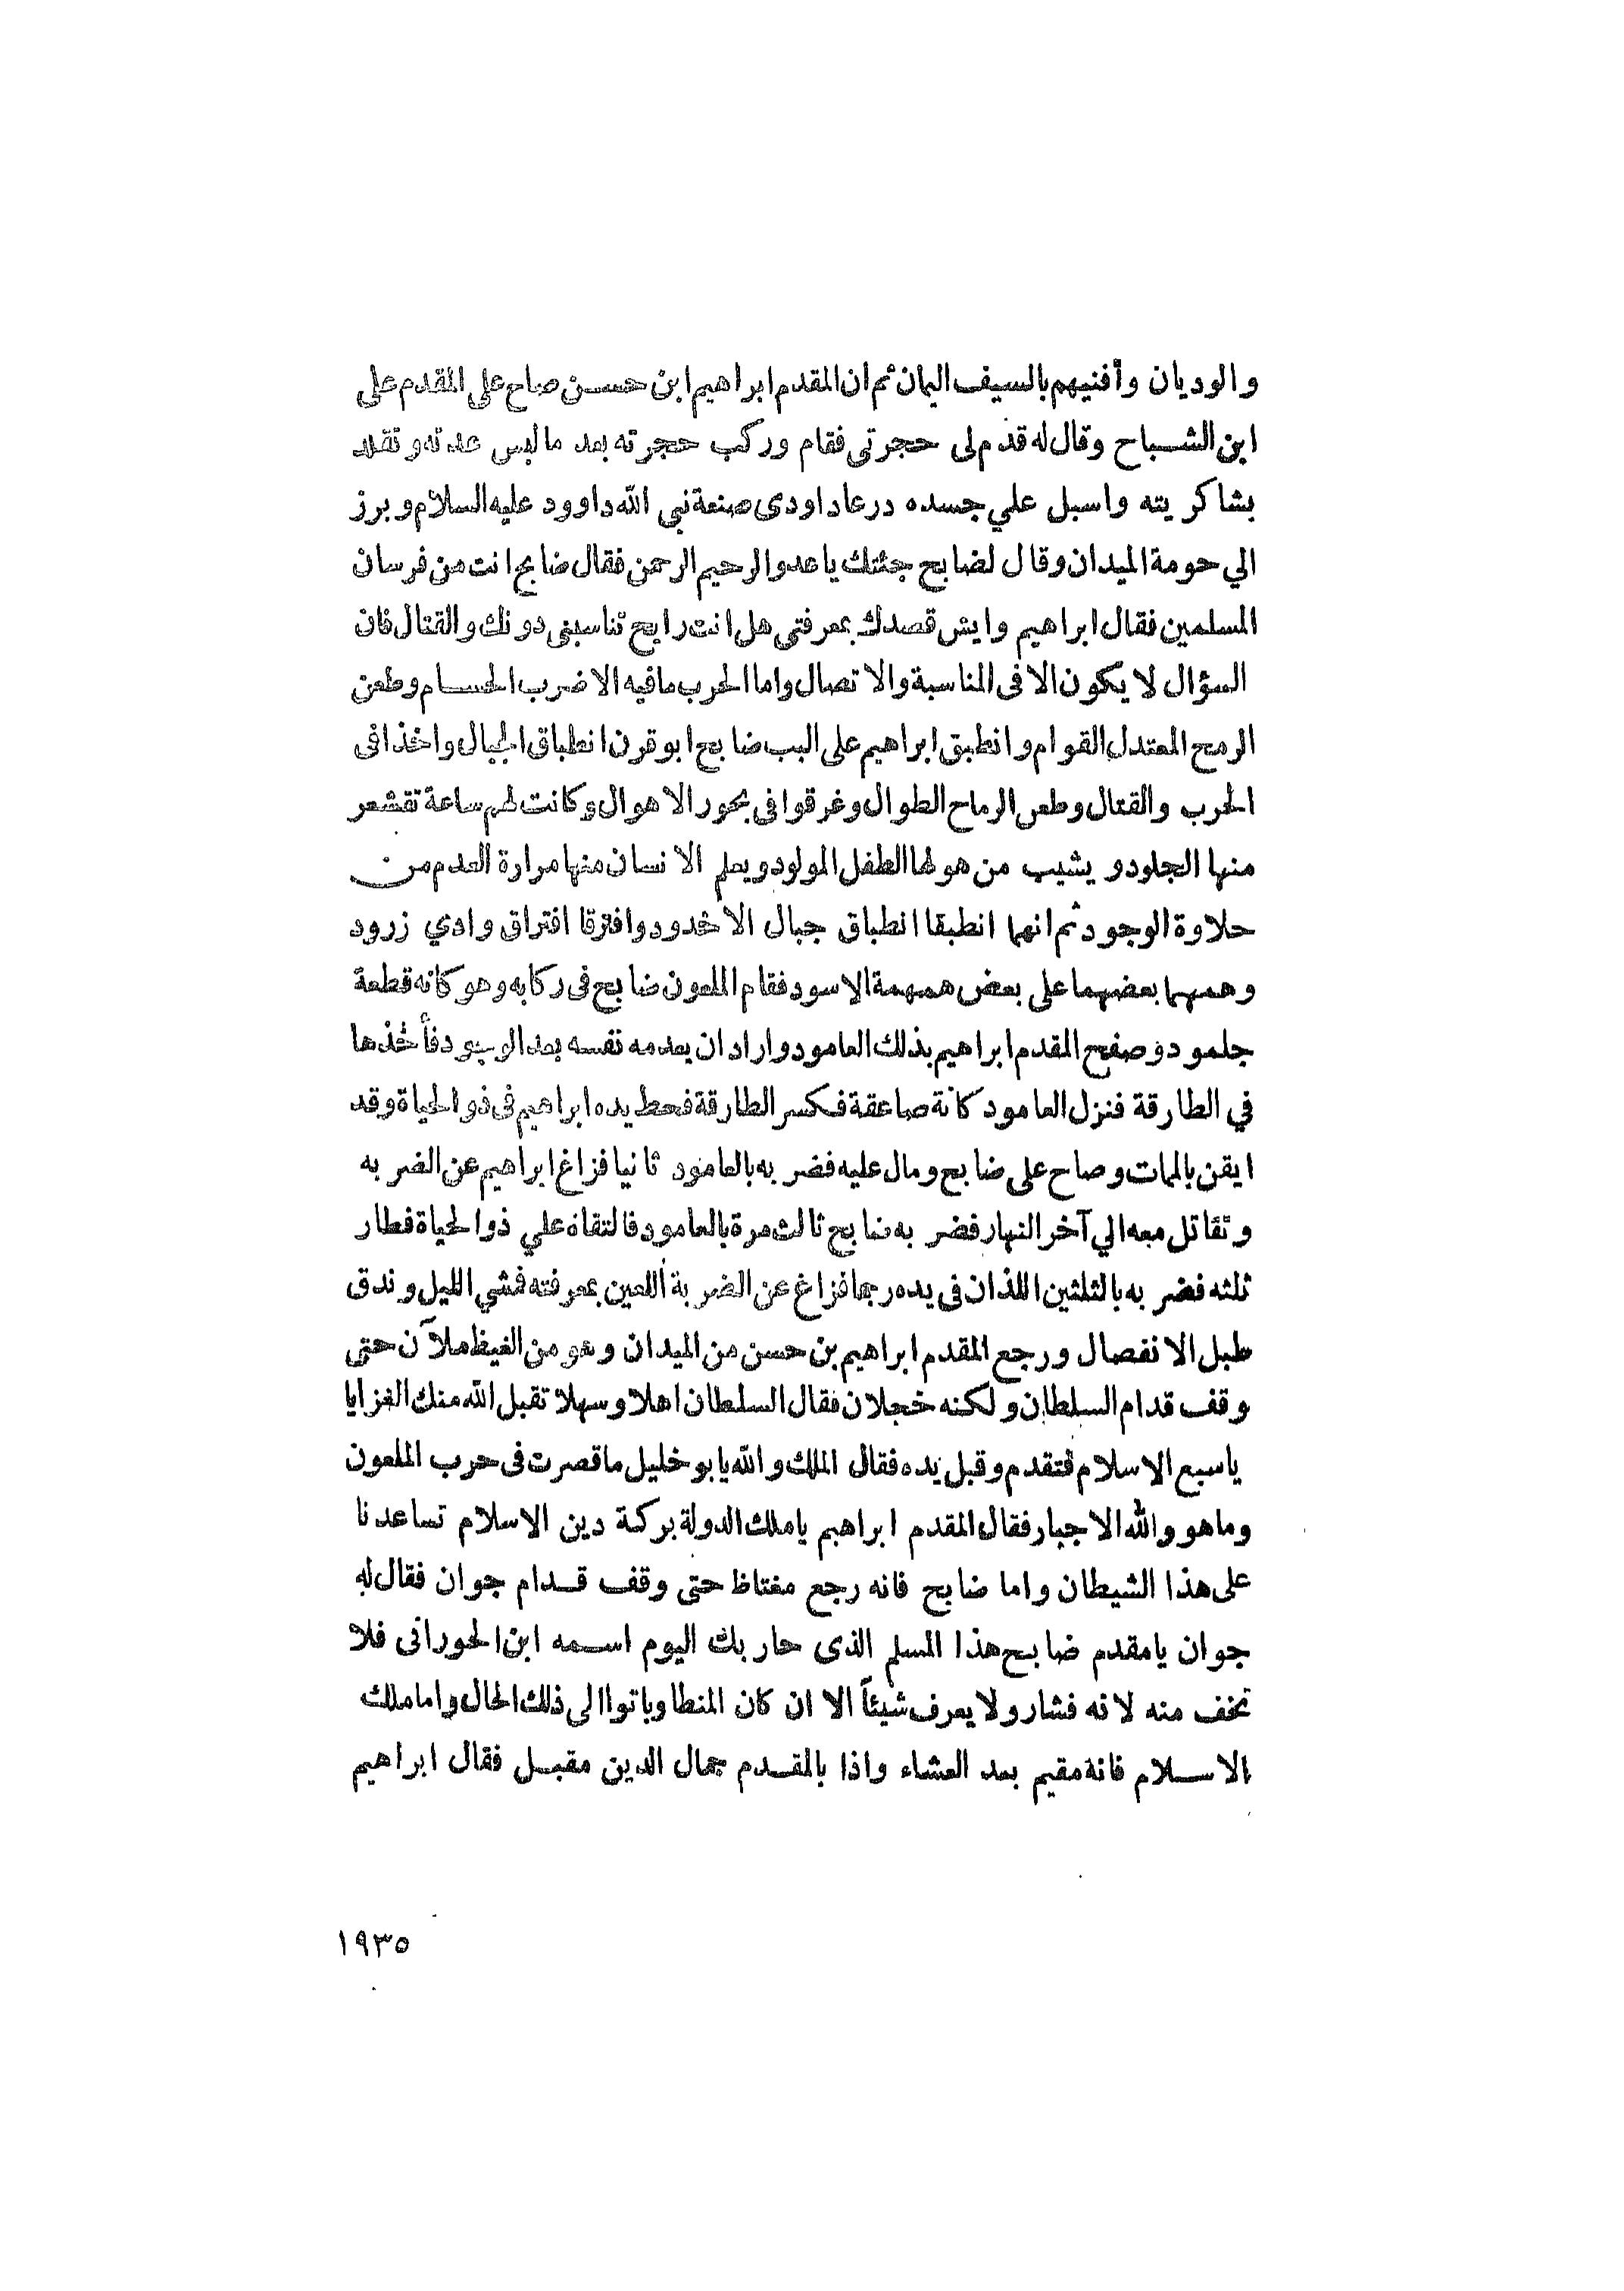 والوديان وأفنيهم بالسيف اليمان ثم ان المقدم ابراهيم ابن حسن صاح على المقدم على
ابن الشباح وقال له قدم لى حجرتى فقام وركب حجرته بعد ما لبس عدته وتقلد
بشاكريته واسبل علي جسده درعا داودى صنعة نبي الله داوود عليه السلام وبرز
الي حومة الميدان وقال لضابح جئتك يا عدو الرحيم الرحمن فقال ضابح انت من فرسان
المسلمين فقال ابراهيم وايش قصدك بمعرفتى هل انت رايح تناسبنى دونك والقتال فان
السؤال لا يكون الا فى المناسبة والاتصال واما الحرب ما فيه الا ضرب الحسام وطعن
الرمح المعتدل القوام وانطبق ابراهيم على البب ضابح ابو قرن انطباق الجبال واخذا فى
الحرب والقتال وطعن الرماح الطوال وغرقوا فى بحور الاهوال وكانت لهم ساعة تقشعر
منها الجلود ويشيب من هولها الطفل المولود ويعلم الانسان منها مرارة العدم من
حلاوة الوجود ثم انهما انطبقا انطباق جبال الاخدود وافترقا افتراق وادي زرود
وهمهما بعضهما على بعض همهمة الاسود فقام الملعون ضابح فى ركابه وهو كانه قطعة
جلمود وصفح المقدم ابراهيم بذلك العامود واراد ان يعدمه نفسه بعد الوجود فأخذها
في الطارقة فنزل العامود كانة صاعقة فكسر الطارقة فحط يده ابراهيم فى ذو الحياة وقد
ايقن بالممات وصاح على ضابح ومال عليه فضربه بالعامود ثانيا فزاغ ابراهيم عن الضربه
وتقاتل معه الي آخر النهار فضربه ضابح ثالث مرة بالعامود فالتقاه علي ذو الحياة فطار
ثلثه فضربه بالثلثين اللذان فى يده رجما فزاغ عن الضربة اللعين بمعرفته فمشي الليل وندق
طبل الانفصال ورجع المقدم ابراهيم بن حسن من الميدان وهو من الغيظ ملآن حتى
وقف قدام السلطان ولكنه خجلان فقال السلطان اهلا وسهلا تقبل الله منك الغزا يا
يا سبع الاسلام فتقدم وقبل يده فقال الملك والله يابو خليل ما قصرت فى حرب الملعون
وما هو والله الا جبار فقال المقدم ابراهيم يا ملك الدولة بركة دين الاسلام تساعدنا
على هذا الشيطان واما ضابح فانه رجع مغتاظ حتى وقف قدام جوان فقال له
جوان يا مقدم ضابح هذا المسلم الذى حاربك اليوم اسمه ابن الحورانى فلا
تخف منه لانه فشار ولا يعرف شيئاً الا ان كان المنطا وباتوا الى ذلك الحال واما ملك
الاسلام فانة مقيم بعد العشاء واذا بالمقدم جمال الدين مقبل فقال ابراهيم
١٩٣٥